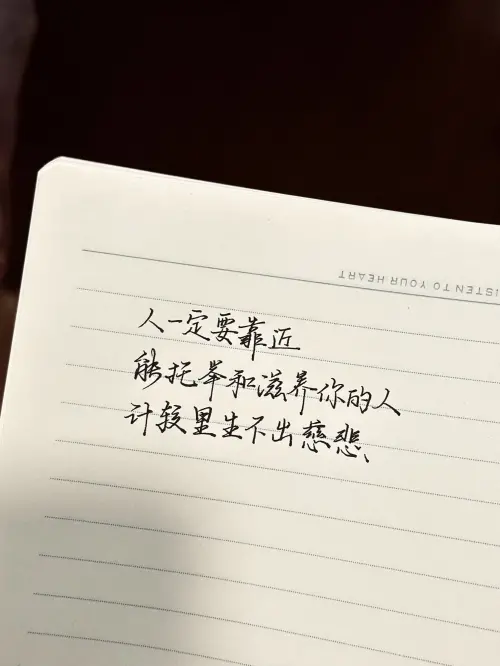 LISTEN TO YOUR HEART
人一定要靠近
能托举和滋养你的人
计较里生不出慈悲、